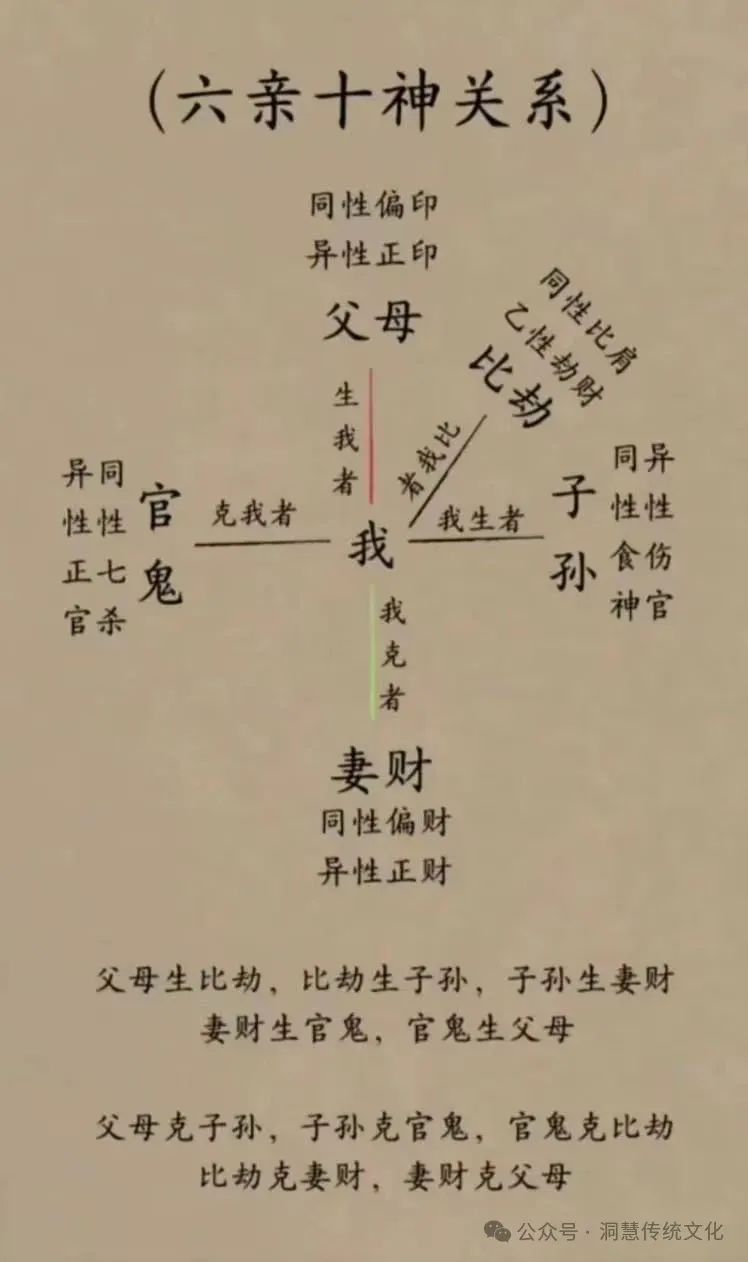 （六亲十神关系）
同性偏印
异性正印
父母
生我者
同性比肩
乙性劫财
比劫
者我比
异性正官
同性七杀
官鬼
克我者
我
我生者
子孙
同性食神
异性伤官
我克者
妻财
同性偏财
异性正财
父母生比劫，比劫生子孙，子孙生妻财
妻财生官鬼，官鬼生父母
父母克子孙，子孙克官鬼，官鬼克比劫
比劫克妻财，妻财克父母
公众号·洞慧传统文化